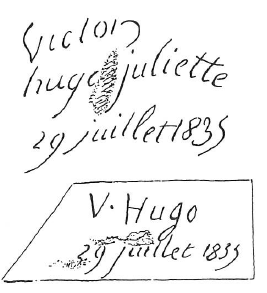 Victor
hugo juliette
29 juillet 1835
V. Hugo
29 juillet 1835